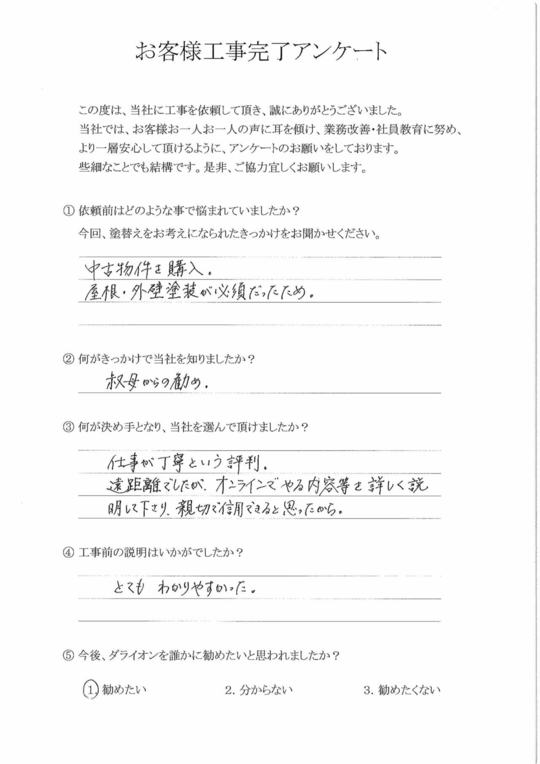 お客様工事完了アンケート
この度は、当社に工事を依頼して頂き、誠にありがとうございました。
当社では、お客様お一人お一人の声に耳を傾け、業務改善・社員教育に努め、
より一層安心して頂けるように、アンケートのお願いをしております。
些細なことでも結構です。是非、ご協力宜しくお願いします。
① 依頼前はどのような事で悩まれていましたか？
今回、塗替えをお考えになられたきっかけをお聞かせください。
中古物件を購入。
屋根・外壁塗装が必須だったため。
② 何がきっかけで当社を知りましたか？
叔母からの勧め。
③ 何が決め手となり、当社を選んで頂けましたか？
仕事が丁寧という評判。
遠距離でしたが、オンラインでやる内容等を詳しく説
明して下さり、親切で信用できると思ったから。
④ 工事前の説明はいかがでしたか？
とても わかりやすかった。
⑤ 今後、ダライオンを誰かに勧めたいと思われましたか？
1. 勧めたい 2. 分からない 3. 勧めたくない